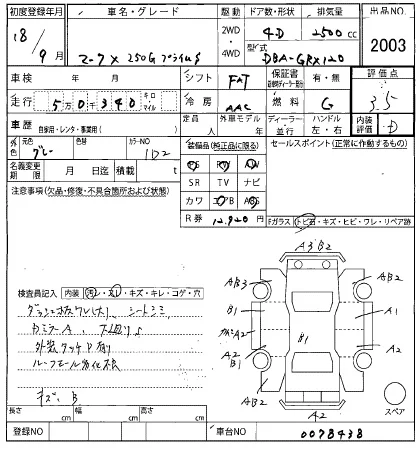 初度登録年月 車名・グレード 駆動 ドア数・形状 排気量 出品NO.
18/9月 マークX 250G 2WD・4WD 4D 2500cc 2003
型式 DBA-GRX120
車検 年 月 シフト FAT 保証書 有・無 評価点 3.5
走行 5万0千340 キロ マイル 冷房 AAC 燃料 G
車歴 自家用・レンタ・事業用( ) 定員 人 外車モデル 年 ディーラー・並行 ハンドル 左・右 内装評価 D
外色 元色 グレー 色替 カラーNO 1D2 装備品(純正品に限る) セールスポイント(正常に作動するもの)
名義変更期限 月 日迄 積載 t PS PW AW
SR TV ナビ
注意事項(欠品・修復・不具合箇所および状態) カワ エアB ABS
R券 12,920円 Fガラス トビ石・キズ・ヒビ・ワレ・リペア跡
A3B2
検査員記入 内装 汚レ・スレ・キズ・キレ・コゲ・穴
AB3 AB2
シートシミ
B1 A1
カミラーA 下廻りS
A2 B1 A2
外装タッチP有り
A2 B1
ルーフモール劣化
AB2 AB2
キズ、B
スペア
A2
長さ cm 幅 cm 高さ cm
登録NO 車台NO 0078438